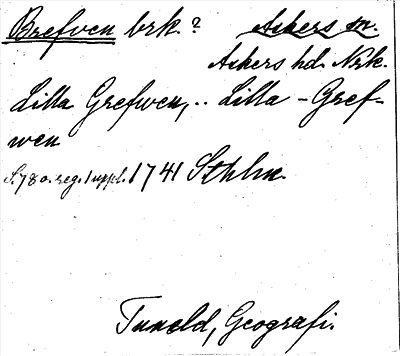 Brefven brk.? Askers sn.
Askers hd. Nrk.
Lilla Grefwen, .. Lilla - Gref-
wen
S. 78 o. reg. 1 uppl. 1741 Sthlm.
Tuneld, Geografi.